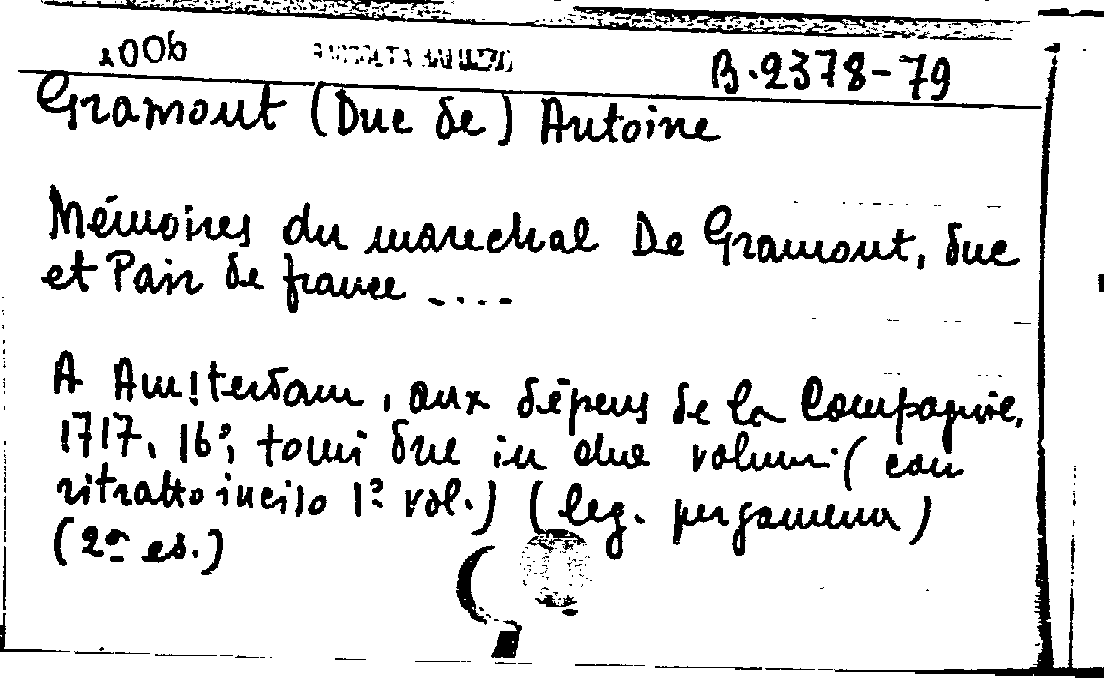 1006 RACCOLTA B.2378-79
Gramont (Duc de) Antoine
Mémoires du marechal De Gramont, duc
et Pair de france ....
A Amsterdam, aux dépens de la Compagnie,
1717. 16°; tomi due in due volumi (con
ritratto inciso 1° vol.) (leg. pergamena)
(2ª es.)